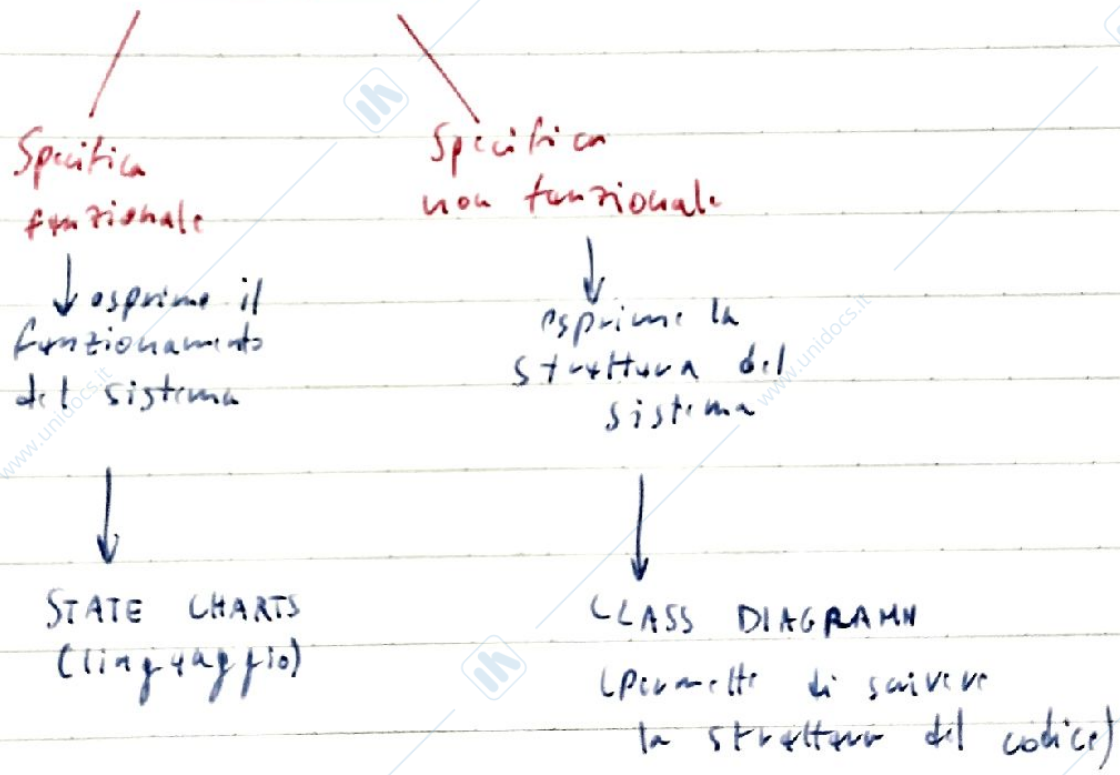 Specifica
funzionale
esprime il
funzionamento
del sistema
STATE CHARTS
(linguaggio)
Specifica
non funzionale
esprime la
struttura del
sistema
CLASS DIAGRAMM
(permette di scrivere
la struttura del codice)
www.unidocs.it
www.unidocs.it